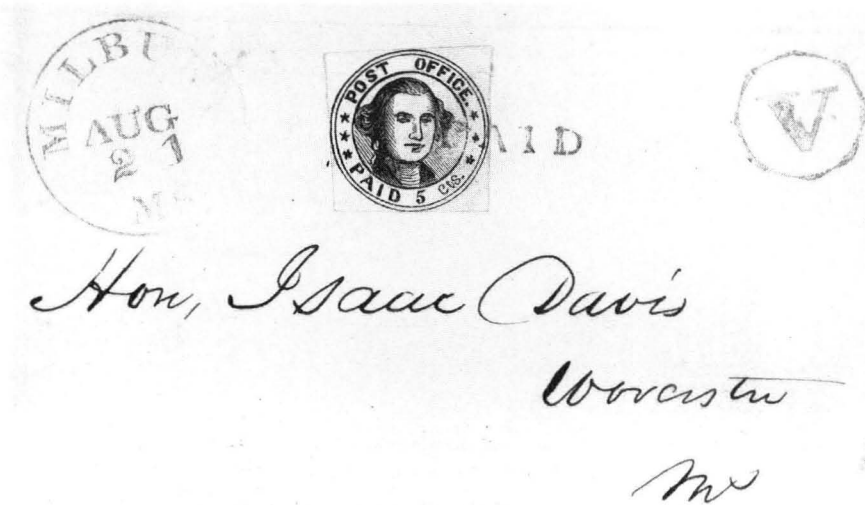 MILBU
AUG
21
POST OFFICE.
PAID 5 Cts.
AID
V
Hon, Isaac Davis
Worcester
Ms